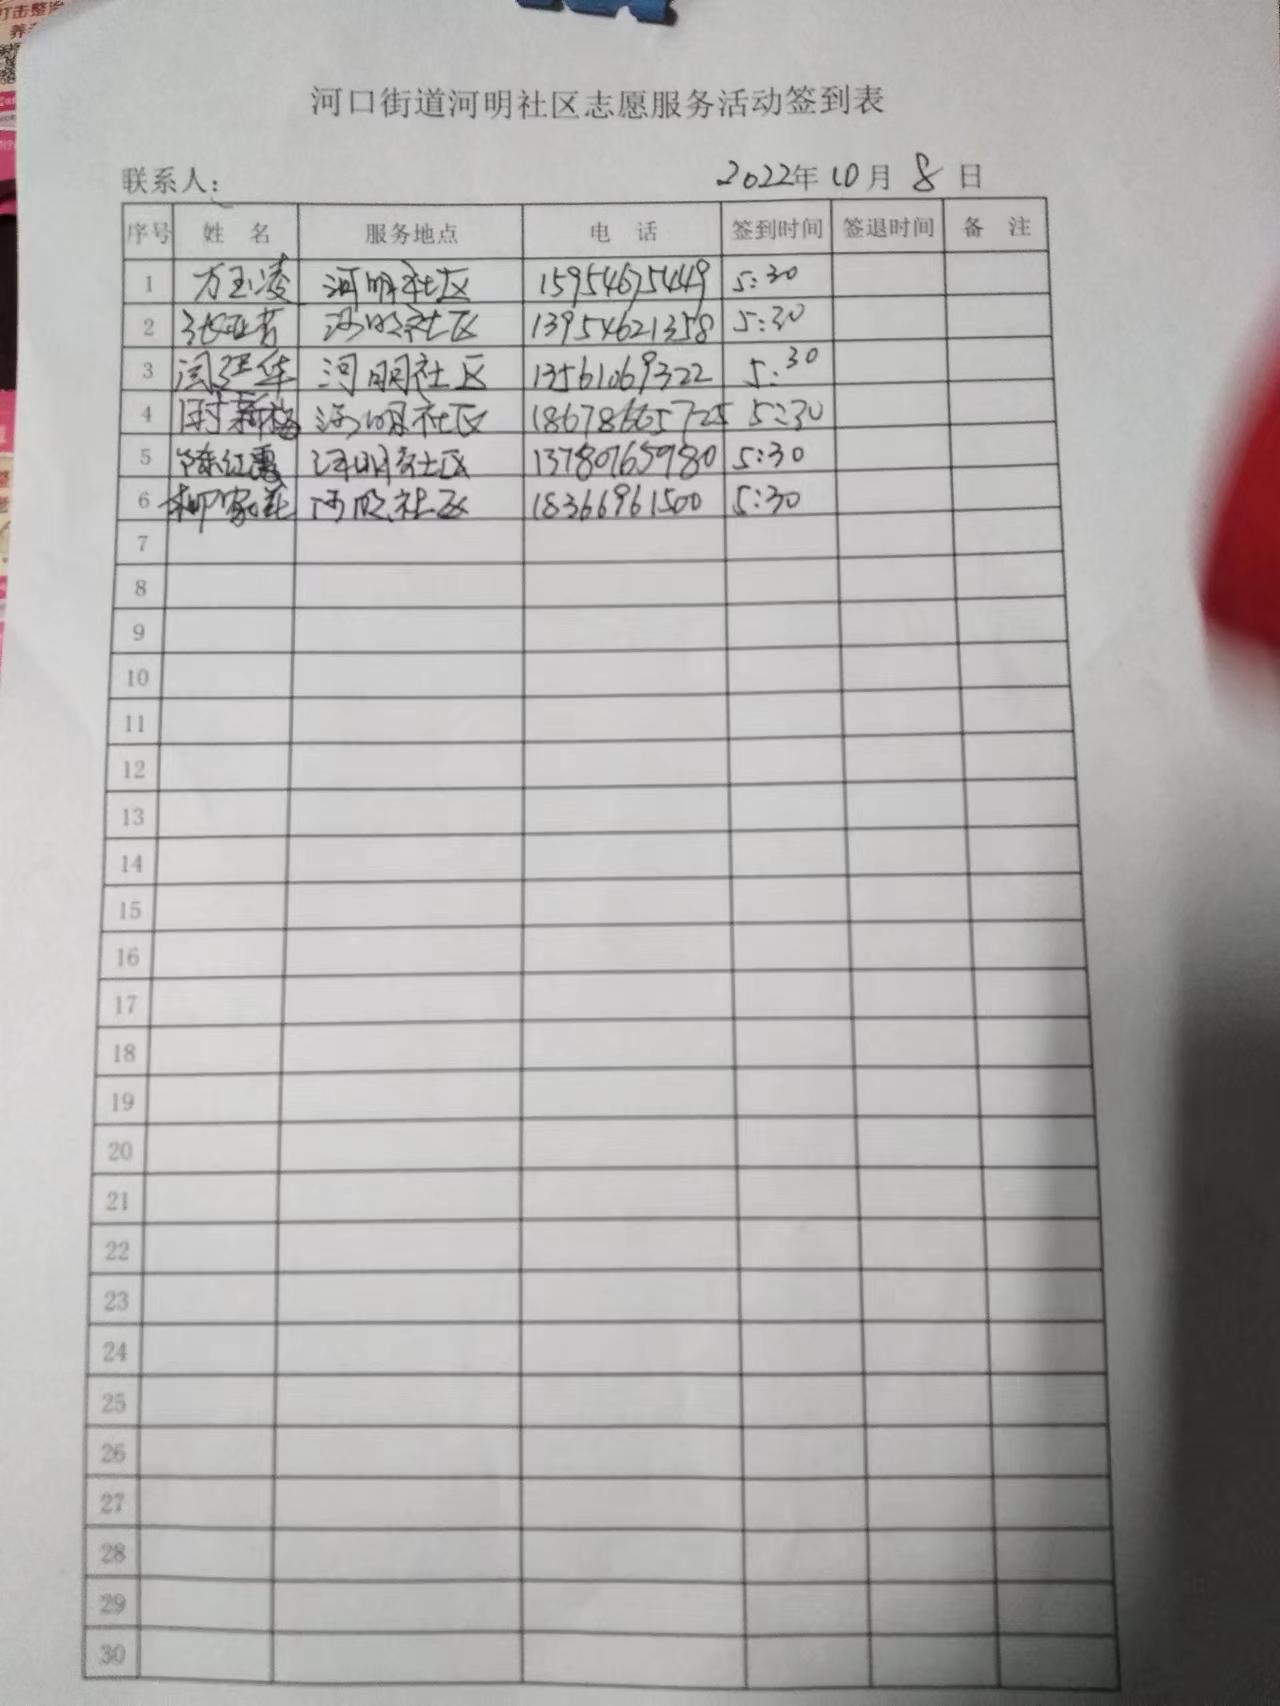 打击整治
养老
河口街道河明社区志愿服务活动签到表
联系人： 2022年10月8日
序号 姓 名 服务地点 电 话 签到时间 签退时间 备 注
1 方玉凌 河明社区 15954675449 5:30
2 河明社区 13954621358 5:30
3 闫弫华 河明社区 13561069322 5:30
4 河明社区 18678665725 5:30
5 陈红霞 河明社区 13780765980 5:30
6 柳家莲 河明社区 18366961500 5:30
7
8
9
10
11
12
13
14
15
16
17
18
19
20
21
22
23
24
25
26
27
28
29
30